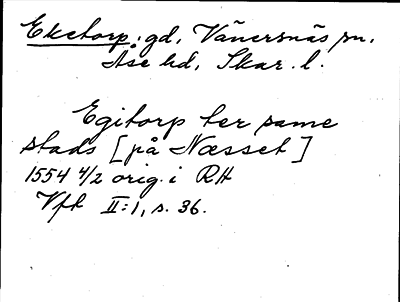 Eketorp, gd, Vänersnäs sn,
Åse hd, Skar. l.
Egitorp ter same
stads [på Næsset]
1554 4/2 orig. i RA
Vft II:1, s. 36.